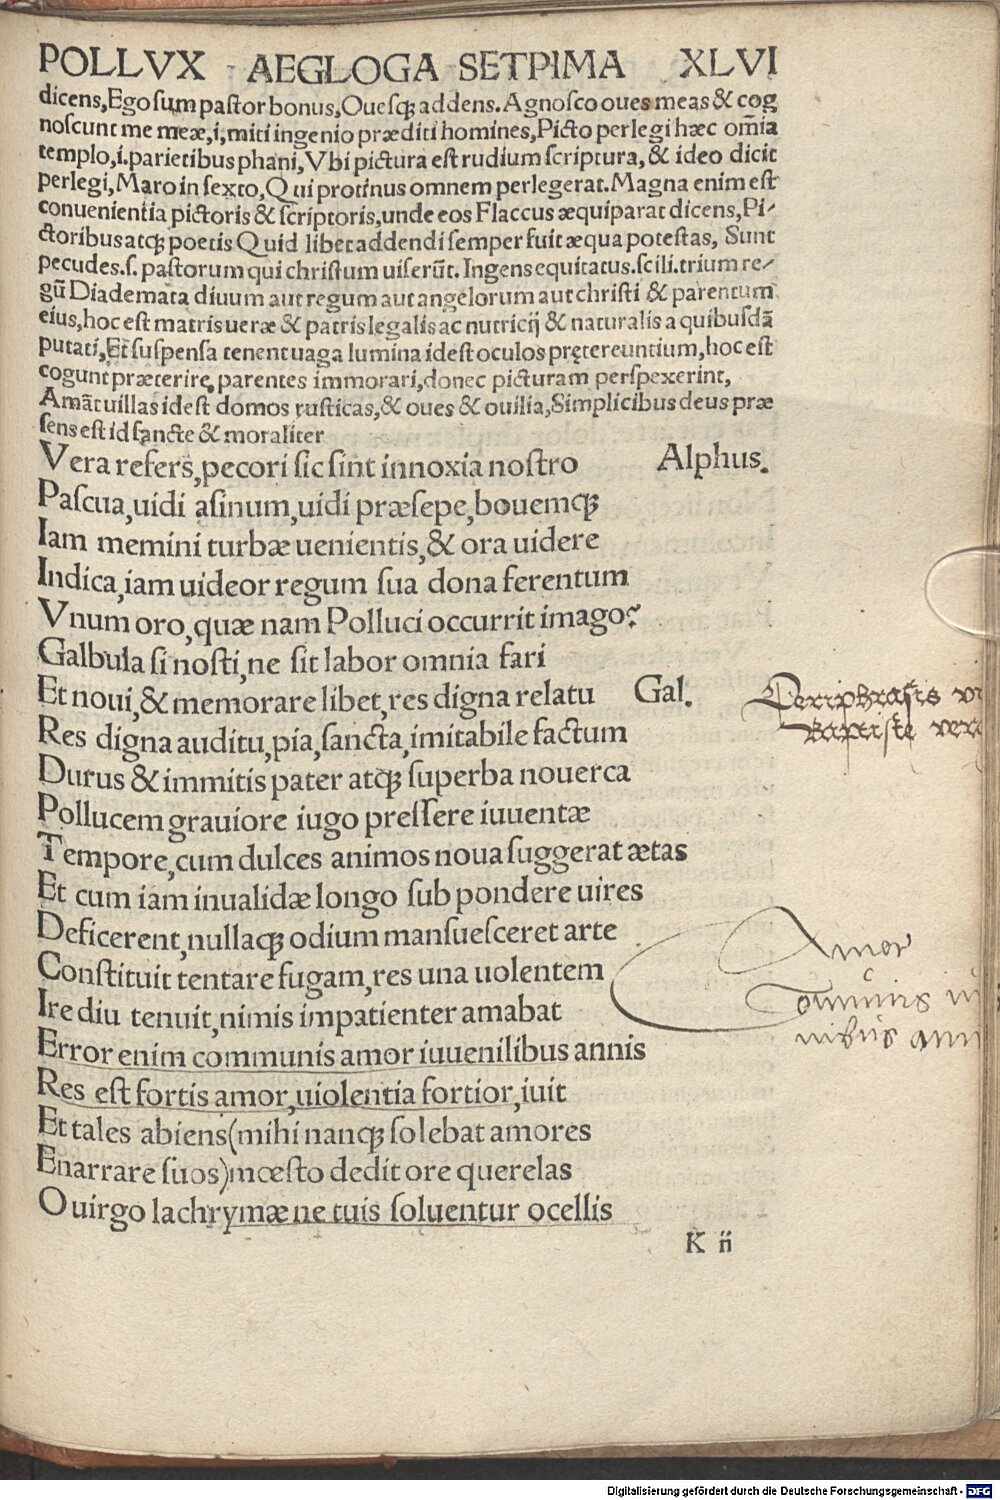 POLLVX AEGLOGA SETPIMA XLVI
dicens,Ego sum pastor bonus,Ouesqȝ addens.Agnosco oues meas & cog
noscunt me meæ,i,miti ingenio præditi homines,Picto perlegi hæc om̃ia
templo,i.parietibus phani,Vbi pictura est rudium scriptura,& ideo dicit
perlegi,Maro in sexto,Qui protinus omnem perlegerat.Magna enim est
conuenientia pictoris & scriptoris,unde eos Flaccus æquiparat dicens,Pi-
ctoribus atqȝ poetis Quid libet addendi semper fuit æqua potestas, Sunt
pecudes.s.pastorum qui christum uiserũt.Ingens equitatus.scili.trium re-
gũ Diademata diuum aut regum aut angelorum aut christi & parentum
eius,hoc est matris ueræ & patris legalis ac nutricij & naturalis a quibusdã
putati,Et suspensa tenent uaga lumina idest oculos prętereuntium,hoc est
cogunt præterire parentes immorari,donec picturam perspexerint,
Amãt uillas idest domos rusticas,& oues & ouilia,Simplicibus deus præ
sens est id sancte & moraliter
Vera refers,pecori sic sint innoxia nostro Alphus.
Pascua,uidi asinum,uidi præsepe,bouemqȝ
Iam memini turbæ uenientis,& ora uidere
Indica,iam uideor regum sua dona ferentum
Vnum oro,quæ nam Polluci occurrit imago?
Galbula si nosti,ne sit labor omnia fari
Et noui,& memorare libet,res digna relatu Gal.
Periphrasis
Baptiste
Res digna auditu,pia,sancta,imitabile factum
Durus & immitis pater atqȝ superba nouerca
Pollucem grauiore iugo pressere iuuentæ
Tempore,cum dulces animos noua suggerat ætas
Et cum iam inualidæ longo sub pondere uires
Deficerent,nullaqȝ odium mansuesceret arte
Constituit tentare fugam,res una uolentem
Ire diu tenuit,nimis impatienter amabat
Error enim communis amor iuuenilibus annis
Amor
communis iu
nibus ann
Res est fortis amor,uiolentia fortior,iuit
Et tales abiens(mihi nanqȝ solebat amores
Enarrare suos)mœsto dedit ore querelas
O uirgo lachrymæ ne tuis soluentur ocellis
K ii
Digitalisierung gefördert durch die Deutsche Forschungsgemeinschaft - DFG